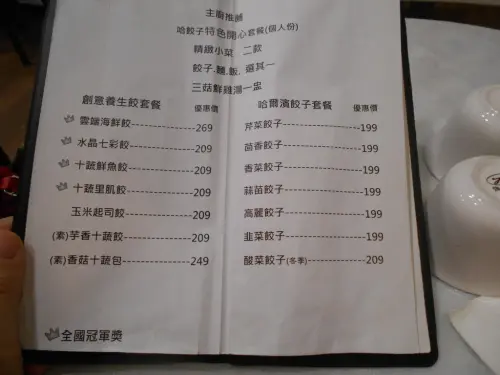 主廚推薦
哈餃子特色開心套餐(個人份)
精緻小菜 二款
餃子.麵.飯. 選其一
三菇鮮雞湯一盅
創意養生餃套餐 優惠價
雲端海鮮餃---------------269
水晶七彩餃--------------209
十蔬鮮魚餃--------------209
十蔬里肌餃--------------209
玉米起司餃--------------209
(素)芋香十蔬餃-------------209
(素)香菇十蔬包-------------249
全國冠軍獎
哈爾濱餃子套餐 優惠價
芹菜餃子------------------199
茴香餃子------------------199
香菜餃子------------------199
蒜苗餃子------------------199
高麗餃子------------------199
韭菜餃子------------------199
酸菜餃子(冬季)-------------209